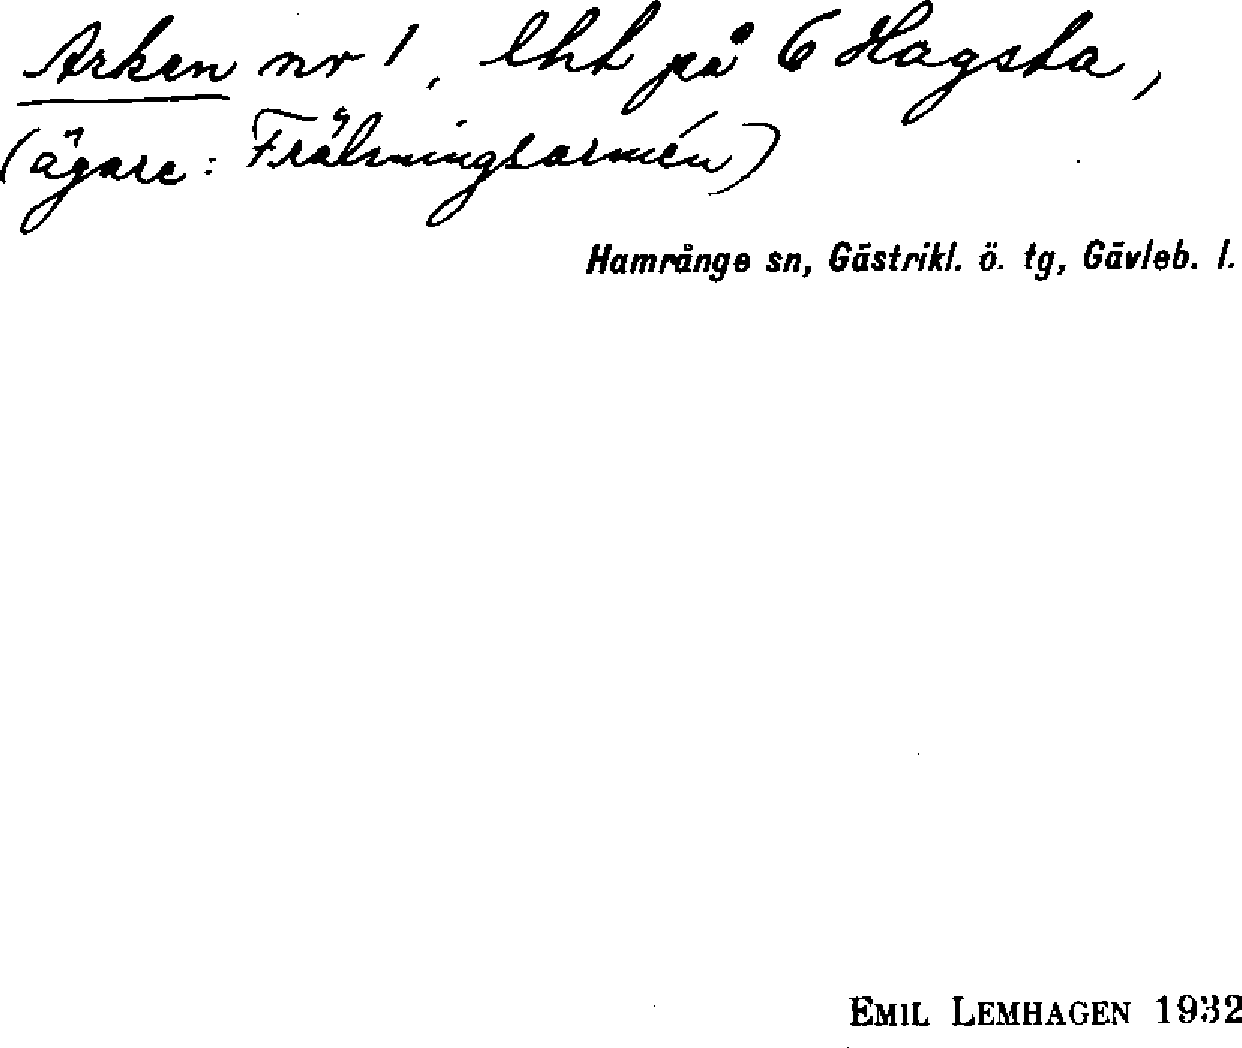 Arken nr 1, lht på 6 Hagsta,
(ägare: Frälsningsarmén)
Hamrånge sn, Gästrikl. ö. tg, Gävleb. l.
EMIL LEMHAGEN 1932